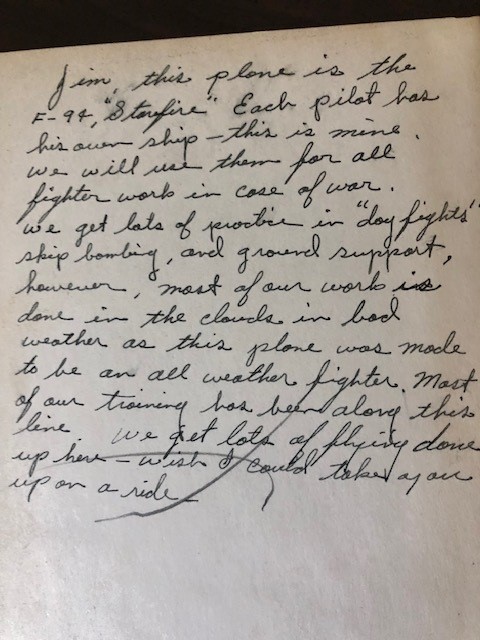 Jim, this plane is the
F-94, "Starfire" Each pilot has
his own ship - this is mine.
we will use them for all
fighter work in case of war.
we get lots of practice in "dog fights"
skip bombing, and ground support,
however, most of our work is
done in the clouds in bad
weather as this plane was made
to be an all weather fighter. Most
of our training has been along this
line we get lots of flying done
up here - wish I could take you
up on a ride